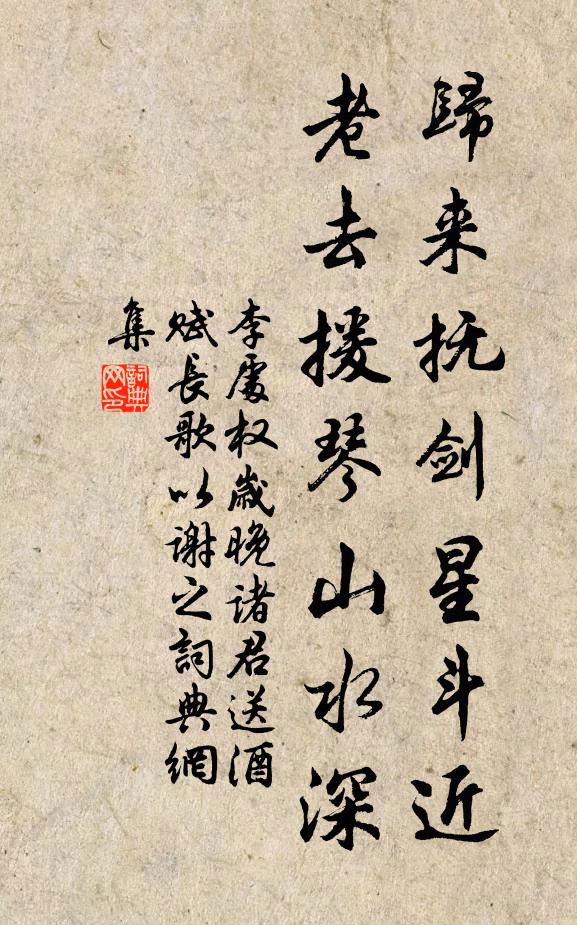 歸来抚剑星斗近
老去援琴山水深
李處权歲晚诸君送酒
赋長歌以谢之詞典網
集
詞典
网印